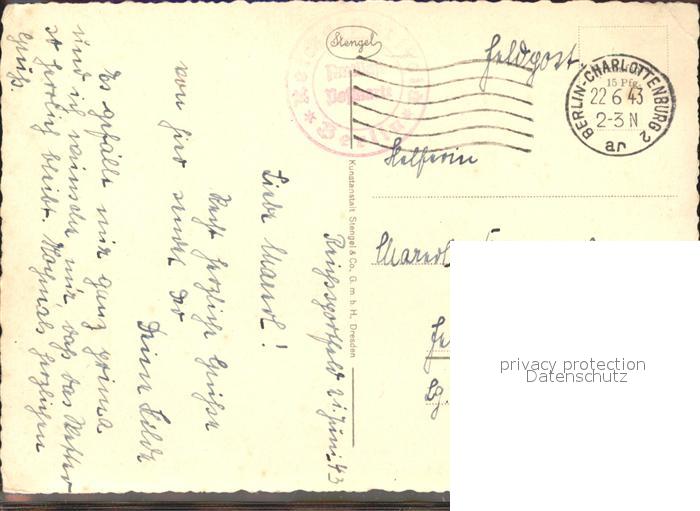 Stengel
Feldpost
15 Pfg.
BERLIN-CHARLOTTENBURG 2
22 6 43
2-3 N
ar
Berlin
Helferin
Kunstanstalt Stengel & Co. G. m. b. H., Dresden
Reichssportfeld 21. Juni 43
Liebe
Recht herzliche Grüße
von hier sendet Dir
Deine
Es gefällt mir ganz prima
und ich wünsche mir, daß das Wetter
so herrlich bleibt. Nochmals herzlichen
Gruß.
privacy protection
Datenschutz